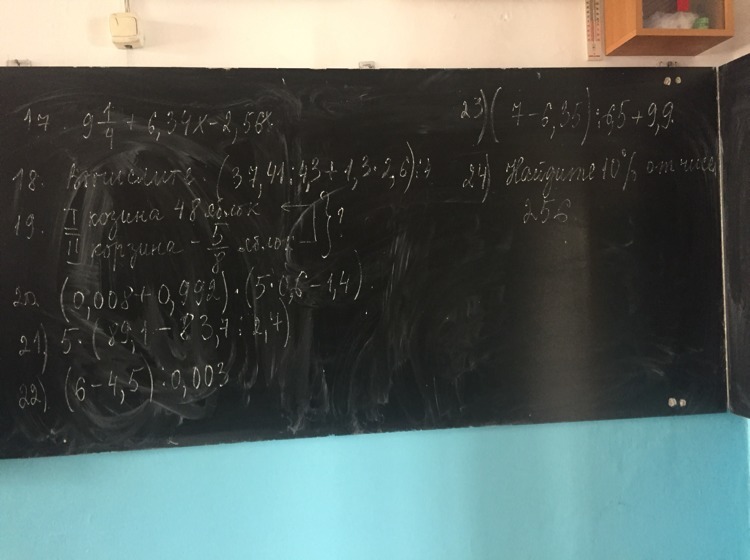 17 9 1/4 + 6,34х - 2,56х
18. Вычислите: (37,41 : 4,3 + 1,3 · 2,6) :
19. I козина 48 яблок
II корзина - 5/8 яблок ?
20. (0,008 + 0,992) · (5 · 0,6 - 1,4)
21) 5 · (89,1 - 83,7 : 2,7)
22). (6 - 4,5) : 0,003
23) (7 - 6,35) : 6,5 + 9,9.
24) Найдите 10% от числа
256